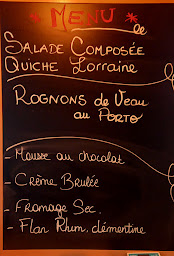 * MENU *
Salade Composée
Quiche Lorraine
Rognons de Veau
au Porto
- Mousse au chocolat
- Crème Brulée
- Fromage Sec.
- Flan Rhum, clémentine